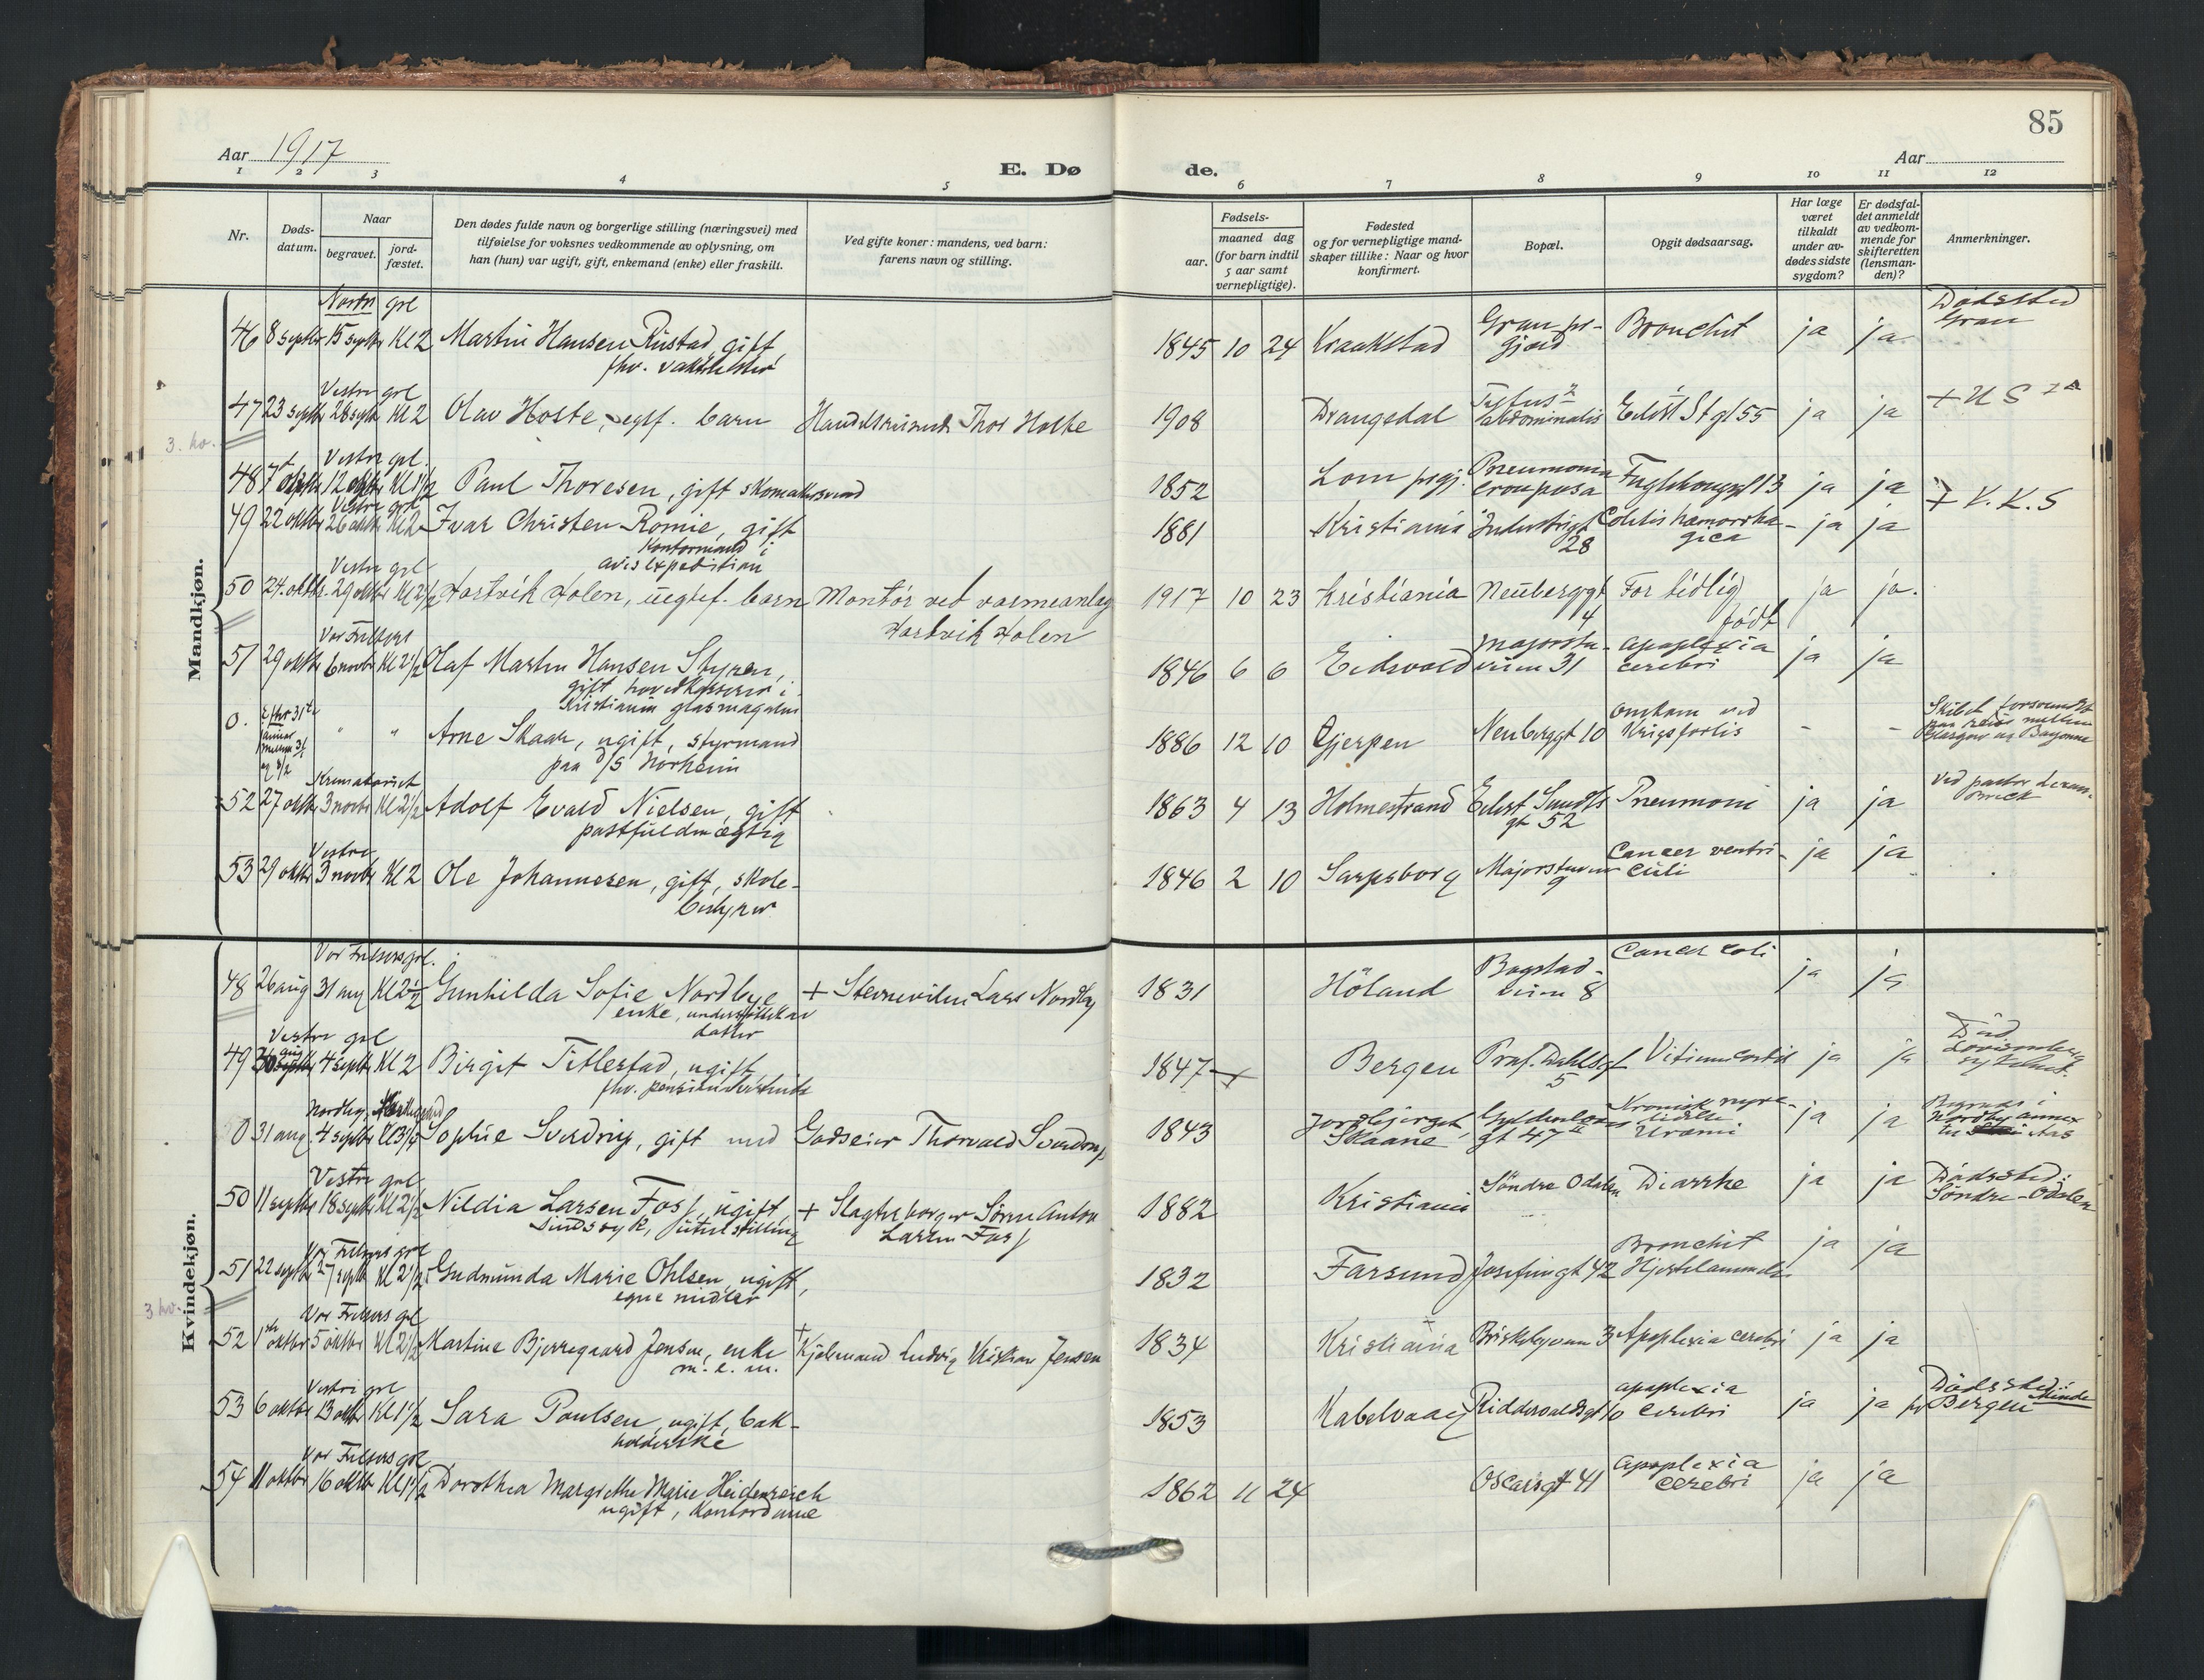 85
Aar 1917
E. Dø
de.
Aar
1 2 3 4 5 6 7 8 9 10 11 12
Nr.
Døds-
datum.
Naar
begravet.
jord-
fæstet.
Den dødes fulde navn og borgerlige stilling (næringsvei) med
tilføielse for voksnes vedkommende av oplysning, om
han (hun) var ugift, gift, enkemand (enke) eller fraskilt.
Ved gifte koner: mandens, ved barn:
farens navn og stilling.
Fødsels-
aar.
maaned dag
(for barn indtil
5 aar samt
vernepligtige).
Fødested
og for vernepligtige mand-
skaper tillike: Naar og hvor
konfirmert.
Bopæl.
Opgit dødsaarsag.
Har læge
været
tilkaldt
under av-
dødes sidste
sygdom?
Er dødsfal-
det anmeldt
av vedkom-
mende for
skifteretten
(lensman-
den)?
Anmerkninger.
Mandkjøn.
Nordre grl
46 8 septbr 15 septbr Kl 2 Martin Hansen Rustad, gift 1845 10 24 Kraakstad Gran pr- Bronchit ja ja Dødssted
fhv. gjæld Gran
Vestre grl
47 23 septbr 28 septbr Kl 2 Olav Holte, egtf. barn Handelsreisende Thor Holte 1908 Drangedal Tyfus abdominalis Eilert S gt 55 ja ja
3. kv.
Vestre grl.
48 7 oktbr 12 oktbr Kl 1 1/2 Paul Thoresen, gift skomakersvend 1852 Lom prgj. Pneumonia crouposa Fuglehauggt 13 ja ja + V.K.S
Vestre grl
49 22 oktbr 26 oktbr Kl 2 Ivar Christen Romie, gift 1881 Kristiania Industrigt 28 Colitis hæmorrha- gica ja ja
Kontormand i
avisexpedition
Vestre grl
50 24. oktbr. 29 oktbr Kl 2 1/2 Hartvik Holen, uegtef. barn Montør ved varmeanlæg 1917 10 23 Kristiania Neuberggt 4 For tidlig født ja ja.
Hartvik Holen
Vor Frelsers
51 29 oktbr 6 novbr Kl 2 1/2 Olaf Martin Hansen Styren, 1846 6 6 Eidsvold Majorstu- veien 31 apoplexia cerebri ja ja
gift hovedkasserer i
Kristiania glasmagasin
0. " " Arne Skaar, ugift, styrmand 1886 12 10 Gjerpen Neuberggt 10 Omkom ved Krigsforlis - - Skibet forsvundet
paa D/S Norheim paa reise mellem
Glasgow og Bayonne
Krematoriet
52 27 oktbr 3 novbr Kl 2 1/2 Adolf Evald Nielsen, gift 1863 4 13 Holmestrand Eilert Sundts gt 52 Pneumoni ja ja Ved pastor
postfuldmægtig
Vestre
53 29 oktbr 3 novbr Kl 2 Ole Johannesen, gift, skole- 1846 2 10 Sarpsborg Majorstuveien 9 Cancer ventri- culi ja ja
bestyrer
Kvindekjøn.
Vor Frelsers grl.
48 26 aug 31 aug Kl 2 1/2 Gunhilda Sofie Nordbye + Lars Nordby 1831 Höland Bogstad- veien 8 Cancer coli ja ja
enke, understöttet av
datter
Vestre grl
49 30 aug 4 septbr Kl 2 Birgit Titlestad, ugift, 1847 Bergen Prof. Dahlsgt 5 Vitium cordis ja ja Død
fhv. Lovisenberg
sykehus.
Nordby Kirkegaard
0 31 aug 4 septbr Kl 3 1/4 Sophie Sverdrup, gift med Godseier Thorvald Sverdrup 1843 Skaane Gyldenløves gt 47 Kronisk nyre- lidelse Uræmi ja ja Begravet i
Nordby annex
til Aas
Vestre grl
50 11 septbr 18 septbr Kl 2 1/2 Nildia Larsen Foss, ugift, + Slagterborger Sören Anton 1882 Kristiania Söndre Odalen Diarrhe ja ja Dödssted:
sindssyk, uten stilling Larsen Foss Söndre-Odalen
Vor Frelsers grl
51 22 septbr 27 septbr Kl 2 1/2 Gudmunda Marie Ohlsen, ugift, 1832 Farsund Josefinegt 42 Bronchit Hjertelammelse ja ja
egne midler
3 kv.
Vor Frelsers grl
52 1 oktbr 5 oktbr Kl 2 1/2 Martine Bjerregaard Jensen, enke + Kjøbmand Ludvig Kristian Jensen 1834 Kristiania Briskebyveien 3 Apoplexia cerebri ja ja
m. e. m.
Vestre grl
53 6 oktbr 13 oktbr Kl 1 1/2 Sara Poulsen, ugift, bak- 1853 Kabelvaag Riddervoldsgt 10 apoplexia cerebri ja ja Dödssted:
holderske Minde pr Bergen
Vor Frelsers grl
54 11 oktbr 16 oktbr Kl 1 1/2 Dorothea Margrethe Marie Heidenreich 1862 11 24 Oscarsgt 41 apoplexia cerebri ja ja
ugift, Kontordame